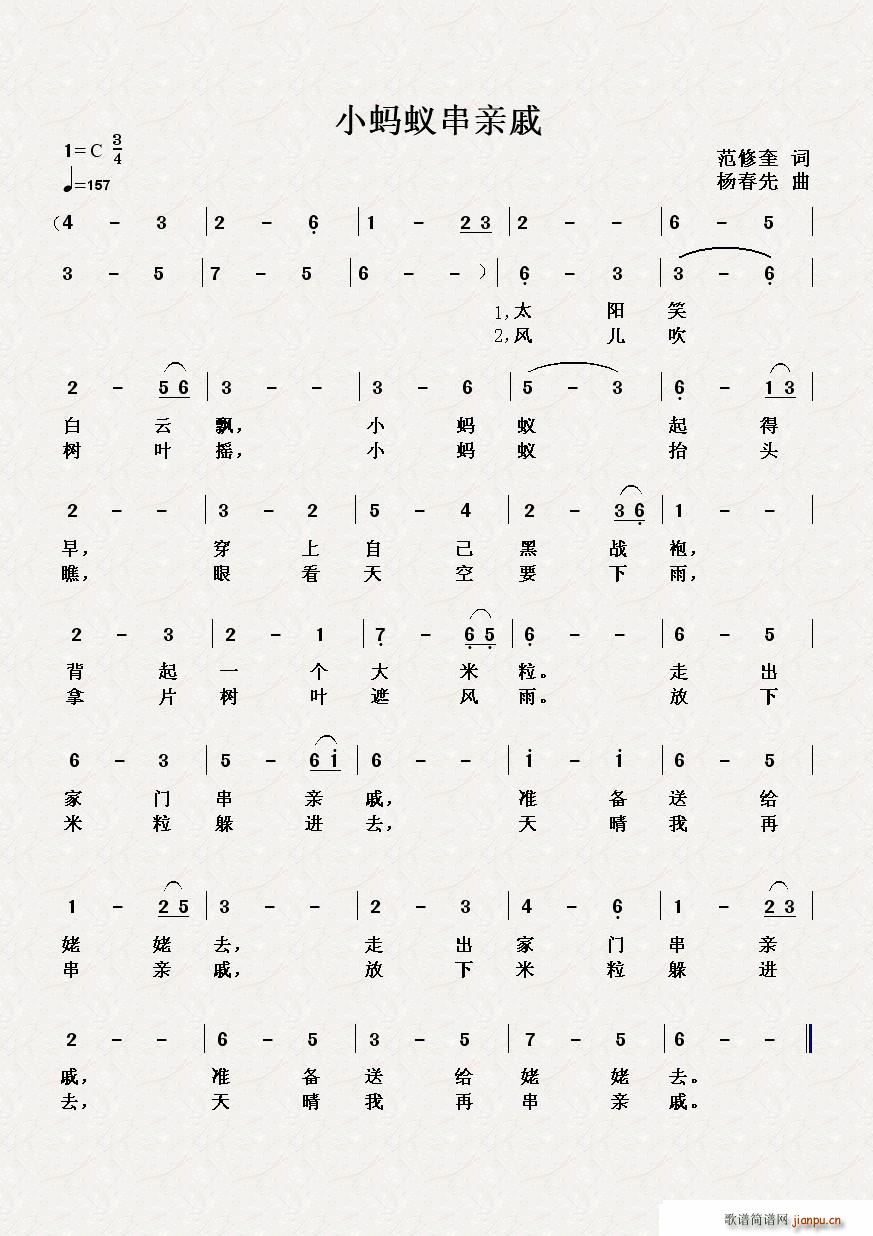 小蚂蚁串亲戚
1=C 3/4
范修奎 词
♩=157
杨春先 曲
(4 - 3 | 2 - 6̣ | 1 - 2 3 | 2 - - | 6 - 5 |
3 - 5 | 7 - 5 | 6 - - ) | 6̣ - 3 | 3 - 6̣ |
1,太 阳 笑
2,风 儿 吹
2 - 5 6 | 3 - - | 3 - 6 | 5 - 3 | 6̣ - 1 3 |
白 云 飘, 小 蚂 蚁 起 得
树 叶 摇, 小 蚂 蚁 抬 头
2 - - | 3 - 2 | 5 - 4 | 2 - 3 6̣ | 1 - - |
早, 穿 上 自 己 黑 战 袍,
瞧, 眼 看 天 空 要 下 雨,
2 - 3 | 2 - 1 | 7̣ - 6̣ 5̣ | 6̣ - - | 6 - 5 |
背 起 一 个 大 米 粒。 走 出
拿 片 树 叶 遮 风 雨。 放 下
6 - 3 | 5 - 6 1̇ | 6 - - | 1̇ - 1̇ | 6 - 5 |
家 门 串 亲 戚, 准 备 送 给
米 粒 躲 进 去, 天 晴 我 再
1 - 2 5 | 3 - - | 2 - 3 | 4 - 6̣ | 1 - 2 3 |
姥 姥 去, 走 出 家 门 串 亲
串 亲 戚, 放 下 米 粒 躲 进
2 - - | 6 - 5 | 3 - 5 | 7 - 5 | 6 - - ‖
戚, 准 备 送 给 姥 姥 去。
去, 天 晴 我 再 串 亲 戚。
歌谱简谱网 jianpu.cn